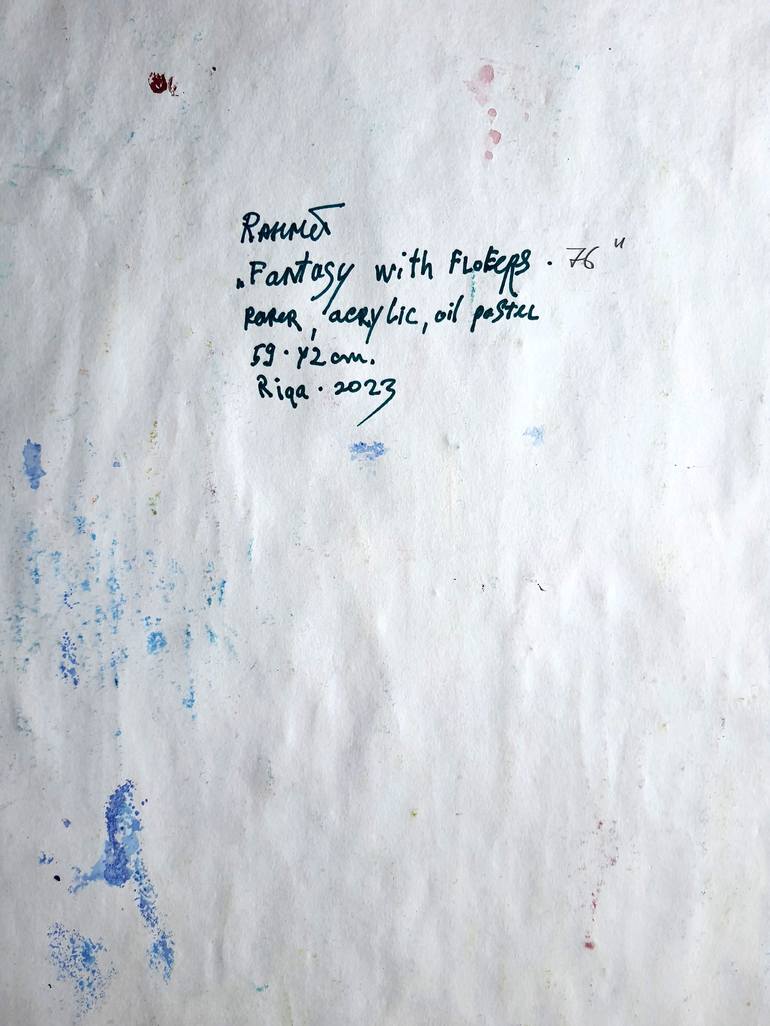 Rahmet
„Fantasy with Flowers · 76"
paper, acrylic, oil pastel
59 · 42 cm.
Riga · 2023